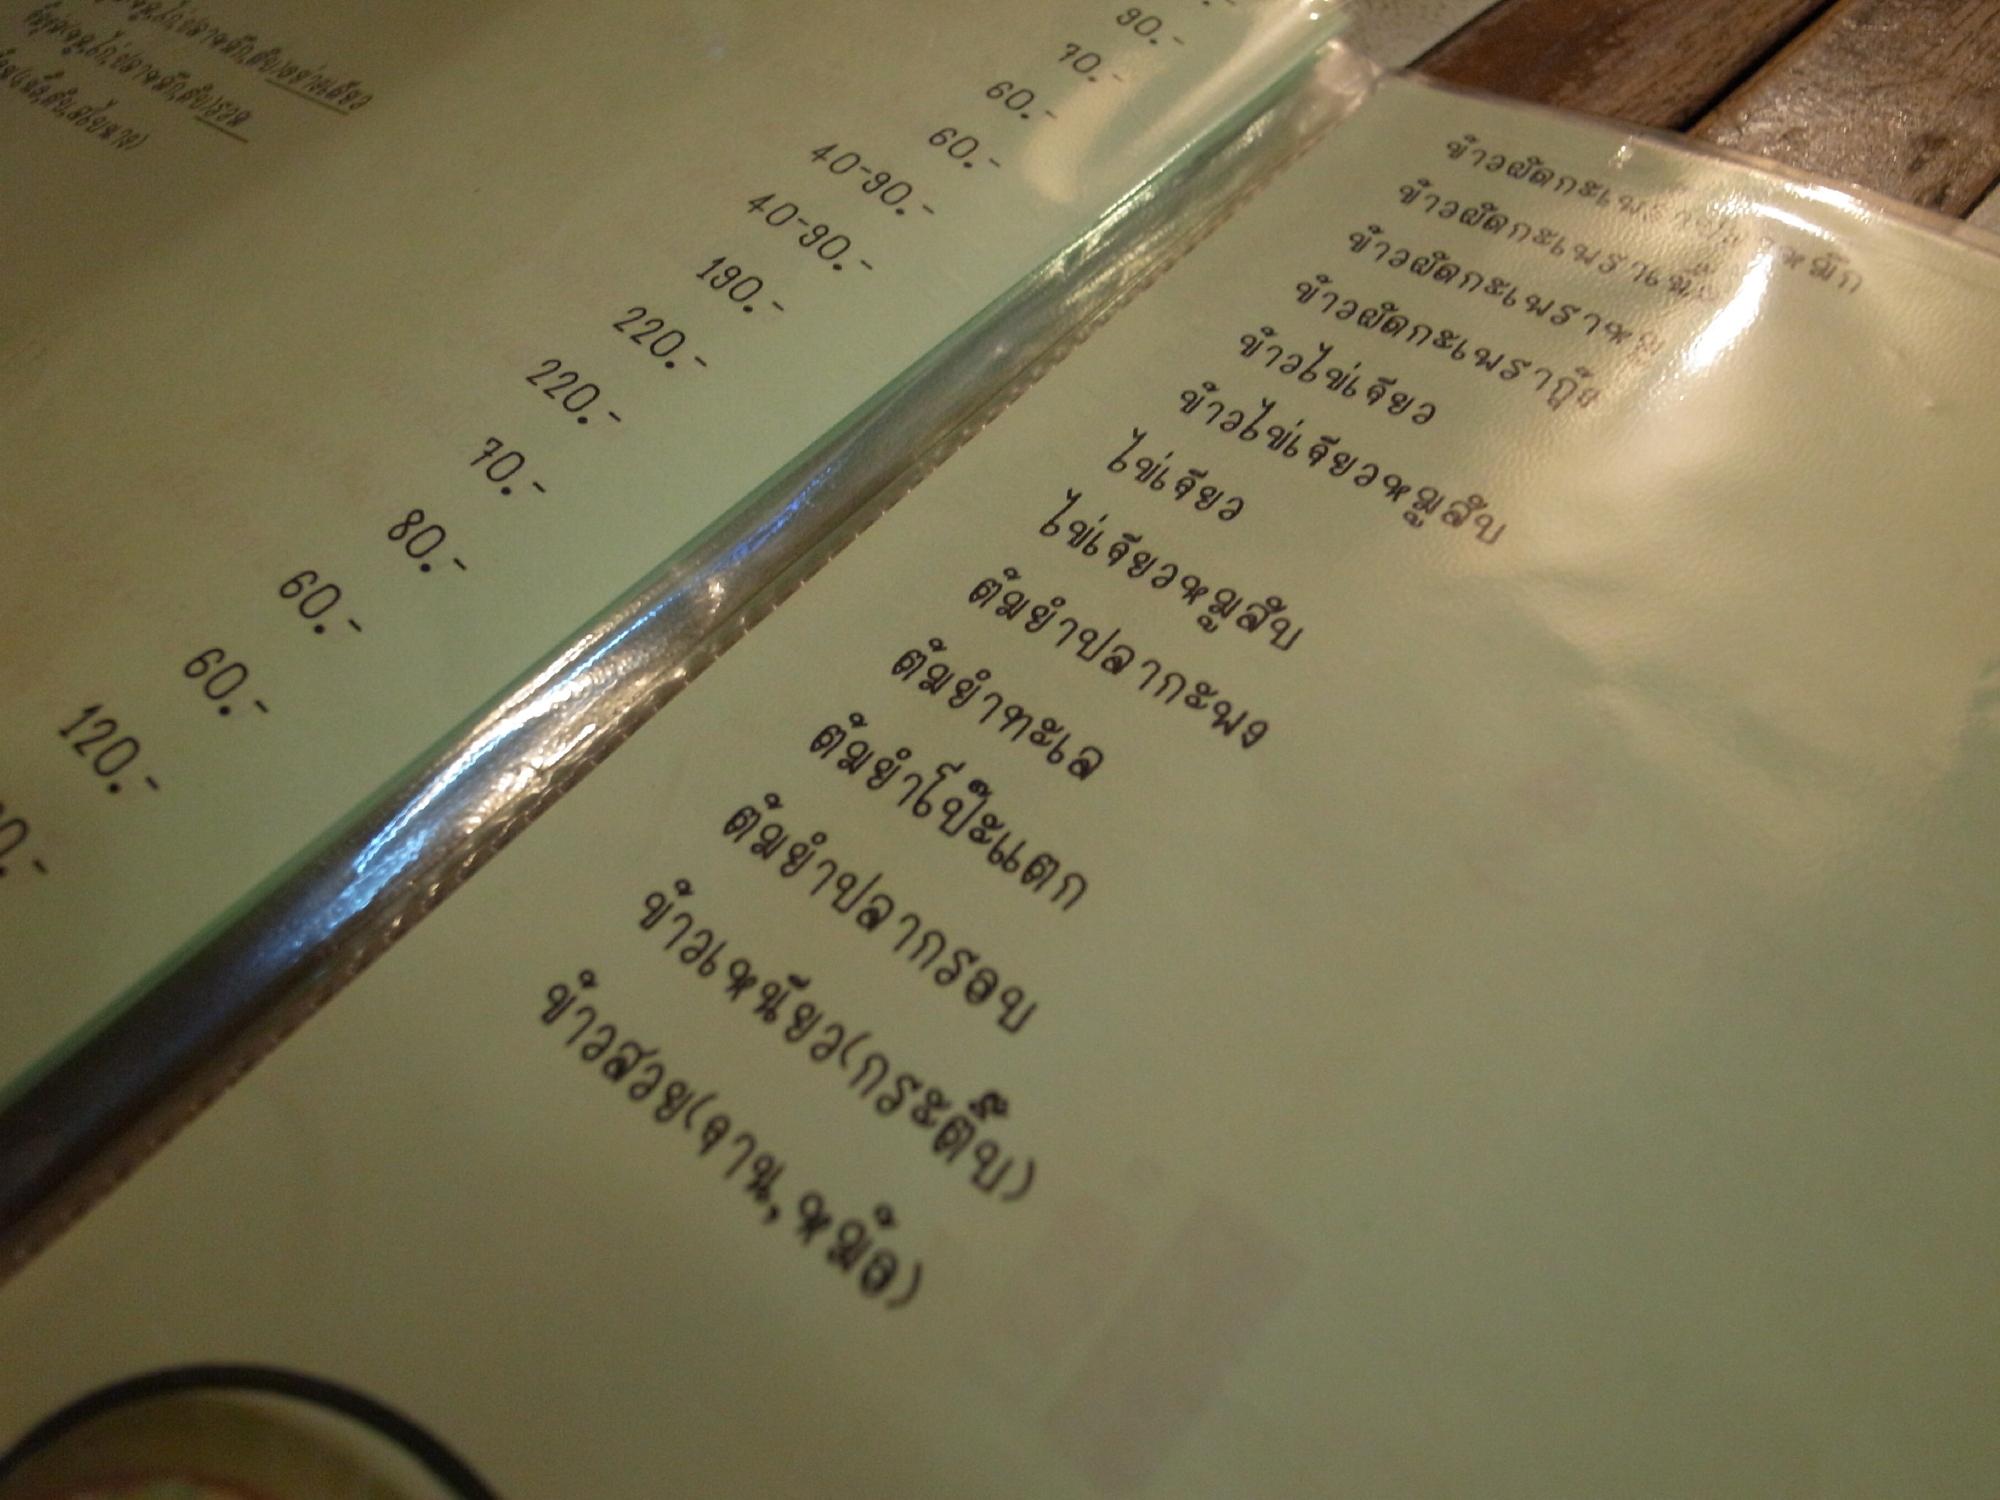 อย่างเดียว
รวม
90.-
70.-
60.-
60.-
40-90.-
40-90.-
190.-
220.-
220.-
70.-
80.-
60.-
60.-
120.-
ข้าวผัดกะเพรา
ข้าวผัดกะเพราเนื้อ
ข้าวผัดกะเพราหมู
ข้าวผัดกะเพรากุ้ง
ข้าวไข่เจียว
ข้าวไข่เจียวหมูสับ
ไข่เจียว
ไข่เจียวหมูสับ
ต้มยำปลากะพง
ต้มยำทะเล
ต้มยำโป๊ะแตก
ต้มยำปลากรอบ
ข้าวเหนียว(กระติ๊บ)
ข้าวสวย(จาน,หม้อ)